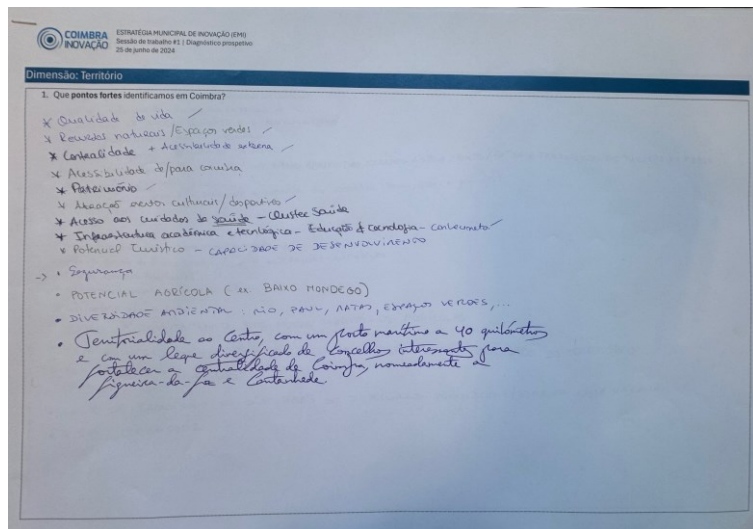 COIMBRA
INOVAÇÃO
ESTRATÉGIA MUNICIPAL DE INOVAÇÃO (EMI)
Sessão de trabalho #1 | Diagnóstico prospetivo
25 de junho de 2024
Dimensão: Território
1. Que pontos fortes identificamos em Coimbra?
* Qualidade de vida
* Recursos naturais / Espaços verdes
* Centralidade + Acessibilidade externa
* Acessibilidade de/para Coimbra
* Património
* Atração eventos culturais/desportivos
* Acesso aos cuidados de saúde - Cluster Saúde
* Infraestrutura académica e tecnológica - Educação & tecnologia - conhecimento
* Potencial Turístico - CAPACIDADE DE DESENVOLVIMENTO
-> • Segurança
• POTENCIAL AGRÍCOLA (ex. BAIXO MONDEGO)
• DIVERSIDADE AMBIENTAL: RIO, PAUL, MATAS, ESPAÇOS VERDES, ...
• Territorialidade ao Centro, com um porto marítimo a 40 quilómetros
e com um leque diversificado de Concelhos interessants para
fortalecer a centralidade de Coimbra, nomeadamente a
Figueira-da-foz e Cantanhede.